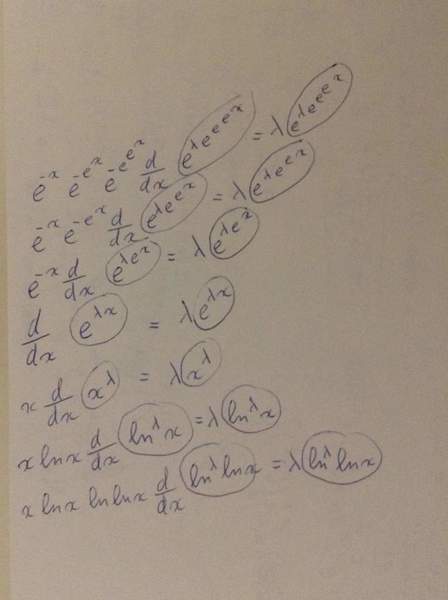 e^{-x} e^{-e^x} e^{-e^{e^x}} \frac{d}{dx} e^{λe^{e^{e^x}}} = λ e^{λe^{e^{e^x}}}
e^{-x} e^{-e^x} \frac{d}{dx} e^{λe^{e^x}} = λ e^{λe^{e^x}}
e^{-x} \frac{d}{dx} e^{λe^x} = λ e^{λe^x}
\frac{d}{dx} e^{λx} = λ e^{λx}
x \frac{d}{dx} x^λ = λ x^λ
x ln x \frac{d}{dx} ln^λ x = λ ln^λ x
x ln x ln ln x \frac{d}{dx} ln^λ ln x = λ ln^λ ln x